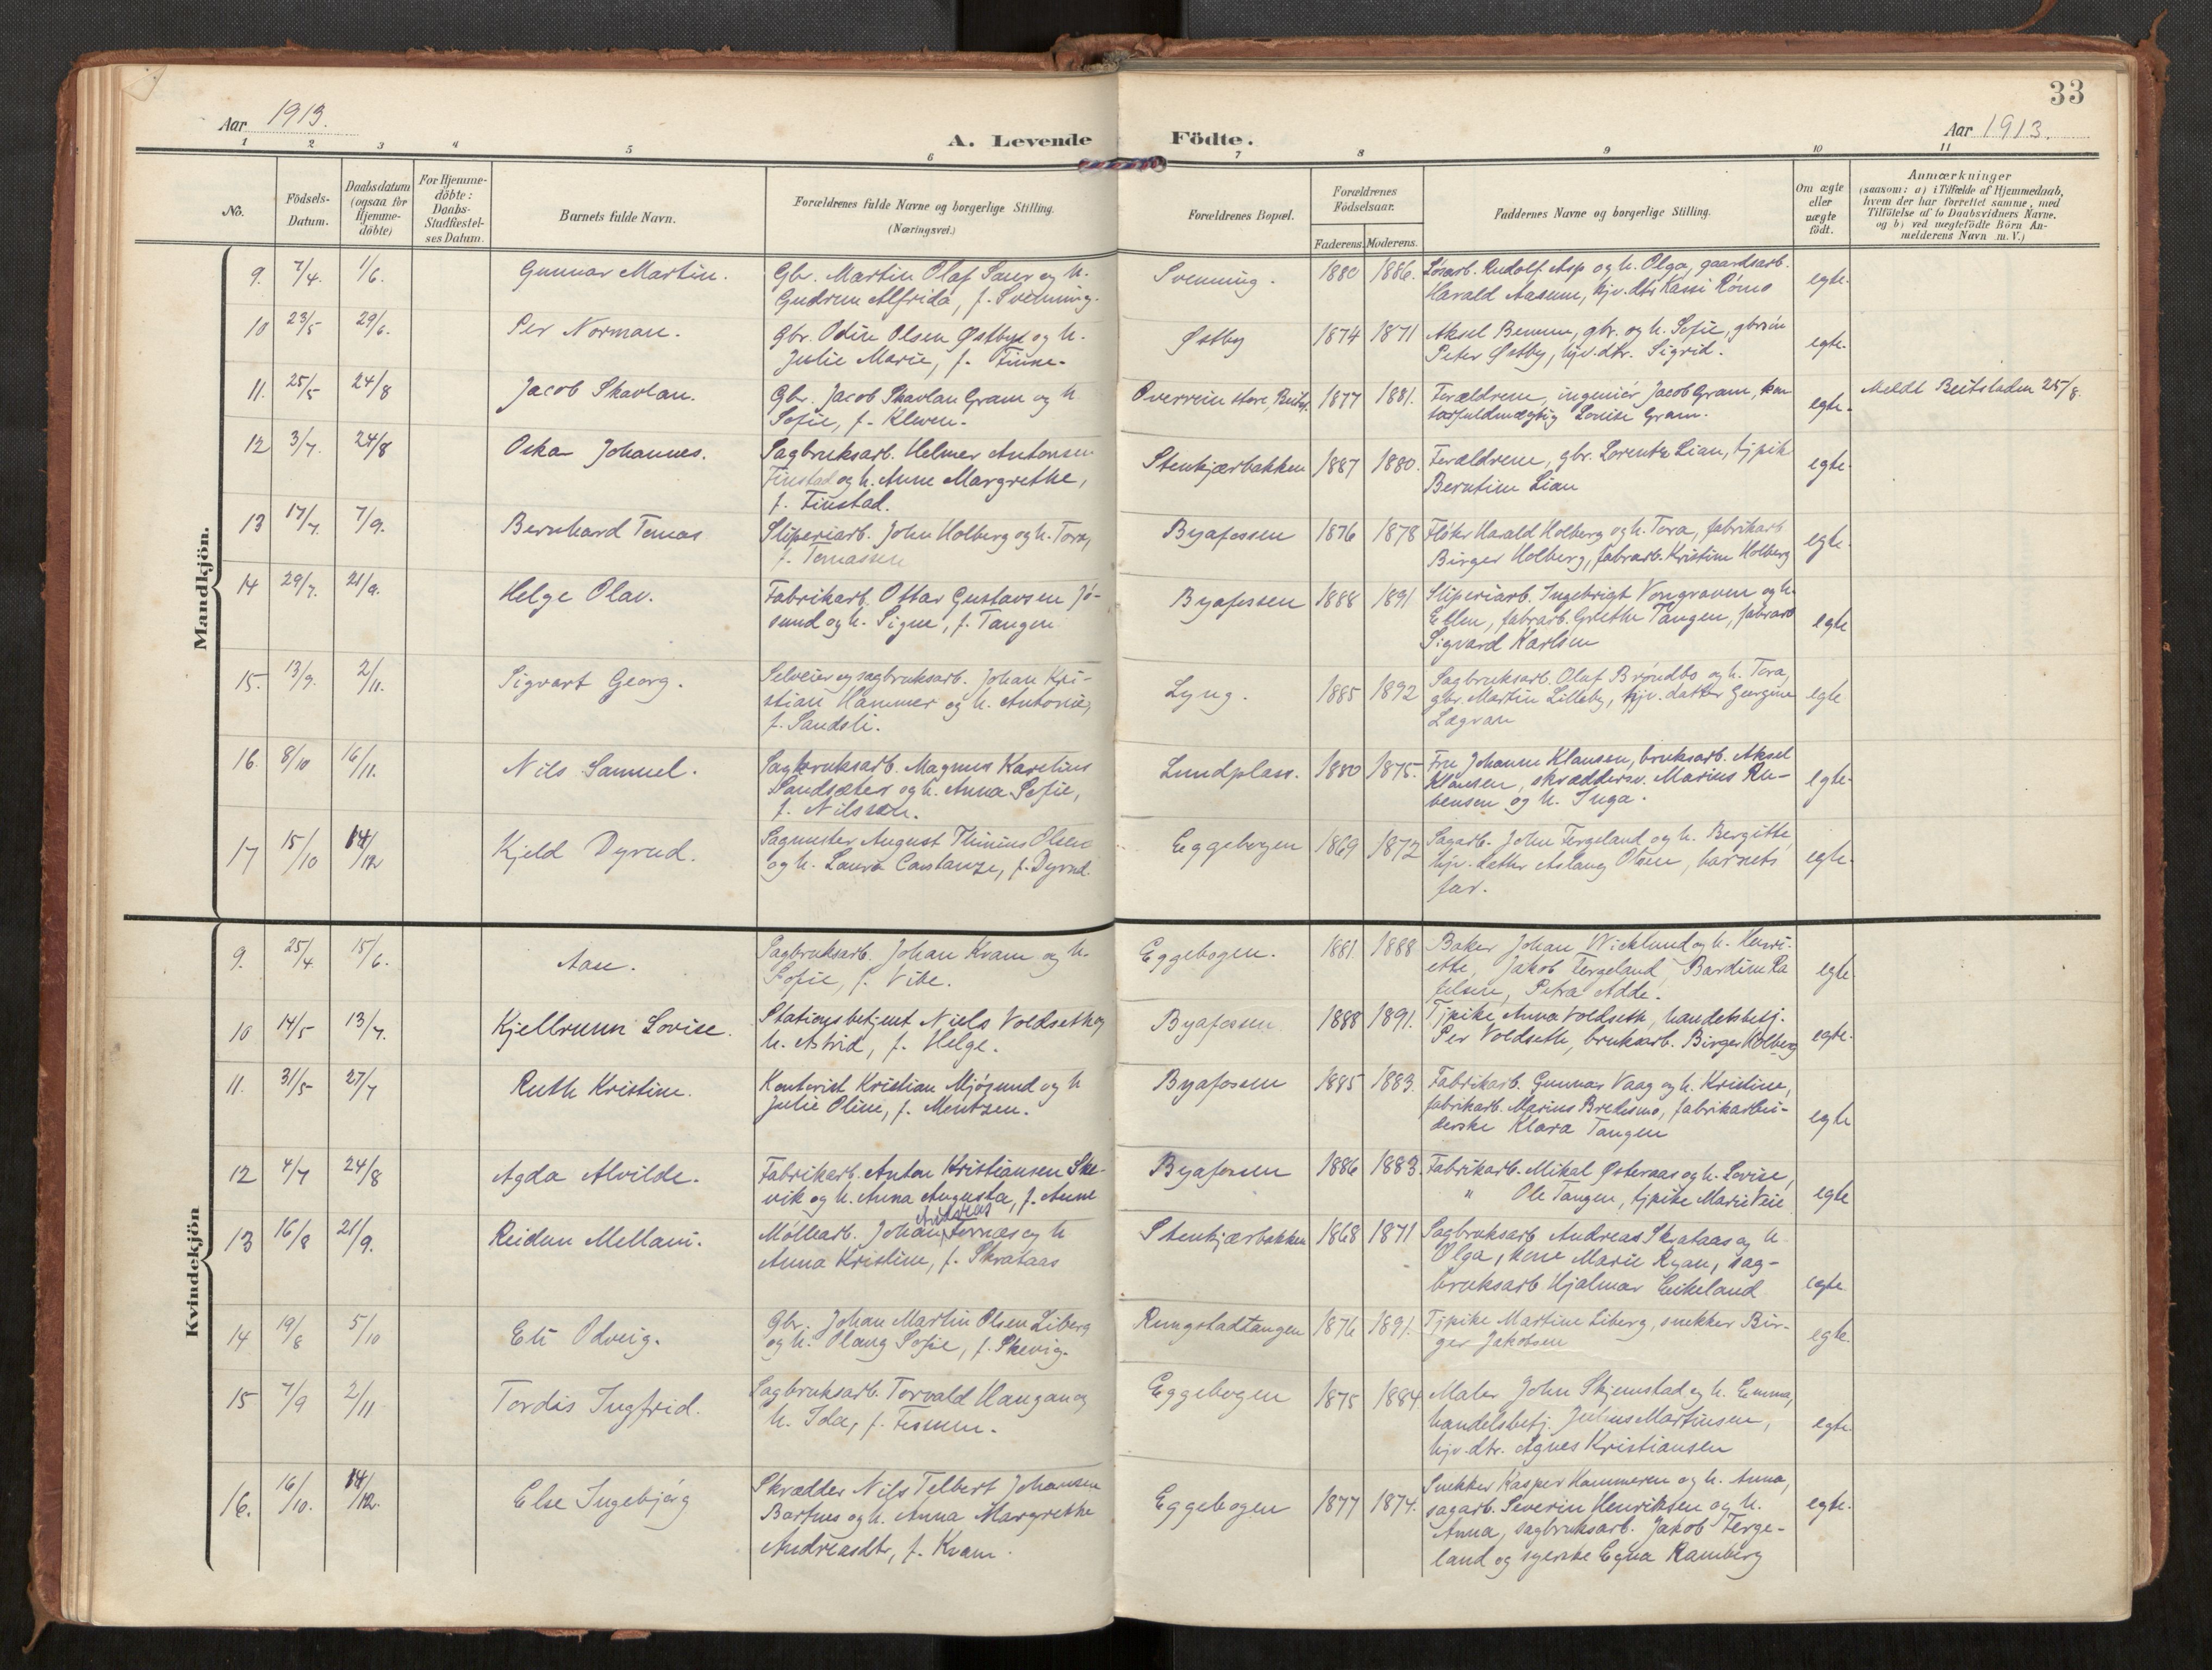 33
Aar 1913.
Aar 1913.
A. Levende Födte.
1 2 3 4 5 6 7 8 9 10 11
No.
Födsels-
Datum.
Daabsdatum
(ogsaa for
Hjemme-
döbte)
For Hjemme-
döbte:
Daabs-
Stadfæstel-
ses Datum.
Barnets fulde Navn.
Forældrenes fulde Navne og borgerlige Stilling.
(Næringsvei.)
Forældrenes Bopæl.
Forældrenes
Födselsaar.
Faderens. Moderens.
Faddernes Navne og borgerlige Stilling.
Om ægte
eller
uægte
födt.
Anmærkninger
(saasom: a) i Tilfælde af Hjemmedaab,
hvem der har forrettet samme, med
Tilföielse af to Daabsvidners Navne.
og b) ved uægtefödte Börn An-
melderens Navn m. V.)
Mandkjön.
9. 7/4. 1/6. Gunnar Martin.
Gbr. Martin Olaf Saur og h.
Gudrun Alfrida, f. Svenning.
Svenning. 1880 1886.
Rudolf Asp og h. Olga, gaardsarb.
Harald Aasum, hjv. dtr
egte.
10 23/5 29/6. Per Norman.
Gbr. Odin Olsen Østbye og h.
Julie Marie, f. Finne.
Østby 1874 1871
Aksel Benum, gbr. og h. Sofie, gbrsøn
Peter Østby, hjv. dtr. Sigrid.
egte.
11. 25/5 24/8 Jacob Skavlan.
Gbr. Jacob Skavlan Gram og h.
Sofie, f. Klewen.
Overrein store, Beitst. 1877 1881.
Forældrene, ingeniør Jacob Gram, kon
torfuldmægtig Louise Gram.
egte.
Meldt Beitstaden 25/8.
12 3/7. 24/8 Oskar Johannes.
Sagbruksarb. Helmer Antonsen
Finstad og h. Anne Margrethe,
f. Finstad.
Stenkjærbakken 1887 1880.
Forældrene, gbr. Lorents Lian, tjpike
Berntine Lian
egte.
13 17/7. 7/9. Bernhard Tomas
Sliperiarb. John Holberg og h. Tora,
f. Tomassen
Byafossen 1876 1878
Fløter Harald Holberg og h. Tora, fabrikarb
Birger Holberg, fabrarb. Kristine Holberg
egte.
14 29/7. 21/9. Helge Olav.
Fabrikarb. Ottar Gustavsen Jø-
sund og h. Signe, f. Tangen
Byafossen 1888 1891
Sliperiarb. Ingebrigt Vongraven og h.
Ellen, fabrarb. Grethe Tangen, fabrarb
Sigvard Karlsen
egte
15. 13/9. 2/11. Sigvart Georg.
Selveier og sagbruksarb. Johan Kri-
stian Hammer og h. Antonie,
f. Sandsli.
Lyng. 1885 1892
Sagbruksarb. Olaf Brøndbo og h. Tora,
gbr. Martin Lilleby, hjv. datter Georgine
Lægran
egte
16. 8/10 16/11. Nils Samuel.
Sagbruksarb. Magnus Karelius
Sandsæter og h. Anna Sofie,
f. Nilssen.
Lundplass. 1880 1875.
Fru Johanne Klausen, bruksarb. Aksel
Klausen, skræddersv. Marius Ru-
bensen og h. Inga.
egte.
17 15/10 14/12 Kjeld Dyrud.
Sagmester August Olsen
og h. Laura Constanze, f. Dyrud.
Eggebogen 1869 1872
Sagarb. John Fergeland og h. Bergitte,
hjv. datter Aslaug Olsen, barnets
far.
egte.
Kvindekjön
9. 25/4 15/6. Aan.
Sagbruksarb. Johan Kvam og h.
Sofie, f. Vibe.
Eggebogen. 1881. 1888
Baker Johan Wicklund og h. Henri-
ette, Jakob Fergeland, Bardine Ra
felsen, Petra Adde.
egte
10 14/5 13/7. Kjellrunn Lovise.
Stationsbetjent Niels Voldseth og
h. Astrid, f. Helge.
Byafossen 1888 1891.
Tjpike Anna Voldseth, handelsbetj.
Per Voldseth, bruksarb. Birger Holberg
egte.
11. 31/5 27/7 Ruth Kristine.
Kontorist Kristian Mjøsund og h
Julie Oline, f. Mentzen.
Byafossen 1885 1883.
Fabrikarb. Gunnar Vaag og h. Kristine,
fabrikarb. Marius Bredesmo, fabrikarbei-
derske Klara Tangen
egte
12 4/7 24/8 Agda Alvilde.
Fabrikarb. Anton Kristiansen Ske-
vik og h. Anna Augusta, f. Aune
Byafossen 1886 1883.
Fabrikarb. Mikal Østeraas og h. Lovise,
" Ole Tangen, tjpike Marie Veie
egte
13 16/8 21/9. Reidun Mellani.
Møllearb. Johan Andreas Fornæs og h
Anna Kristine, f. Skrataas
Stenkjærbakken 1868 1871
Sagbruksarb Andreas Skrataas og h.
Olga, kone Marie Ryan, sag-
bruksarb. Hjalmar Eikeland
egte
14 19/8 5/10 Eli Odveig.
Gbr. Johan Martin Olsen Liberg
og h. Olaug Sofie, f. Skevig.
Rungstadtangen 1876 1891.
Tjpike Martine Liberg, snekker Bir-
ger Jakobsen
egte.
15 7/9 2/11 Tordis Ingfrid.
Sagbruksarb. Torvald Haugan og
h. Ida, f. Fismen.
Eggebogen 1875 1884
Maler John Skjemstad og h. Emma,
handelsbetj. Julius Martinsen,
hjv. dtr. Agnes Kristiansen
egte.
16. 16/10. 14/12. Else Ingebjørg
Skrædder Nils Telbert Johansen
Bartnes og h. Anna Margrethe
Andreasdtr, f. Kvam.
Eggebogen 1877 1874.
Snekker Kasper Hammeren og h. Anna,
sagarb. Severin Henriksen og h.
Anna, sagbruksarb. Jakob Ferge-
land og syerske Egna Ramberg
egte.